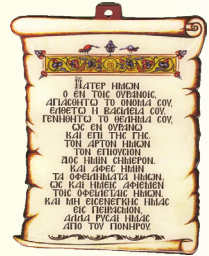 ΠΑΤΕΡ ΗΜΩΝ
Ο ΕΝ ΤΟΙΣ ΟΥΡΑΝΟΙΣ,
ΑΓΙΑΣΘΗΤΩ ΤΟ ΟΝΟΜΑ ΣΟΥ,
ΕΛΘΕΤΩ Η ΒΑΣΙΛΕΙΑ ΣΟΥ,
ΓΕΝΝΗΘΗΤΩ ΤΟ ΘΕΛΗΜΑ ΣΟΥ,
ΩΣ ΕΝ ΟΥΡΑΝΩ
ΚΑΙ ΕΠΙ ΤΗΣ ΓΗΣ.
ΤΟΝ ΑΡΤΟΝ ΗΜΩΝ
ΤΟΝ ΕΠΙΟΥΣΙΟΝ
ΔΟΣ ΗΜΙΝ ΣΗΜΕΡΟΝ.
ΚΑΙ ΑΦΕΣ ΗΜΙΝ
ΤΑ ΟΦΕΙΛΗΜΑΤΑ ΗΜΩΝ,
ΩΣ ΚΑΙ ΗΜΕΙΣ ΑΦΙΕΜΕΝ
ΤΟΙΣ ΟΦΕΙΛΕΤΑΙΣ ΗΜΩΝ.
ΚΑΙ ΜΗ ΕΙΣΕΝΕΓΚΗΣ ΗΜΑΣ
ΕΙΣ ΠΕΙΡΑΣΜΟΝ,
ΑΛΛΑ ΡΥΣΑΙ ΗΜΑΣ
ΑΠΟ ΤΟΥ ΠΟΝΗΡΟΥ.